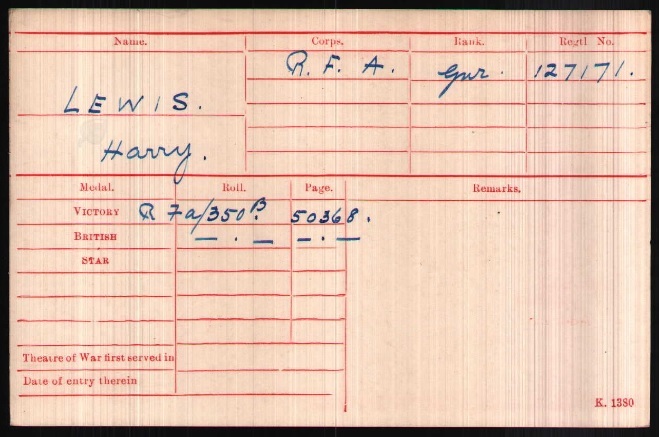 Name. Corps. Rank. Regtl No.
R. F. A. Gnr. 127171.
LEWIS.
Harry.
Medal. Roll. Page. Remarks.
VICTORY R 7a/350B. 50368.
BRITISH — . — — . —
STAR
Theatre of War first served in
Date of entry therein
K. 1380